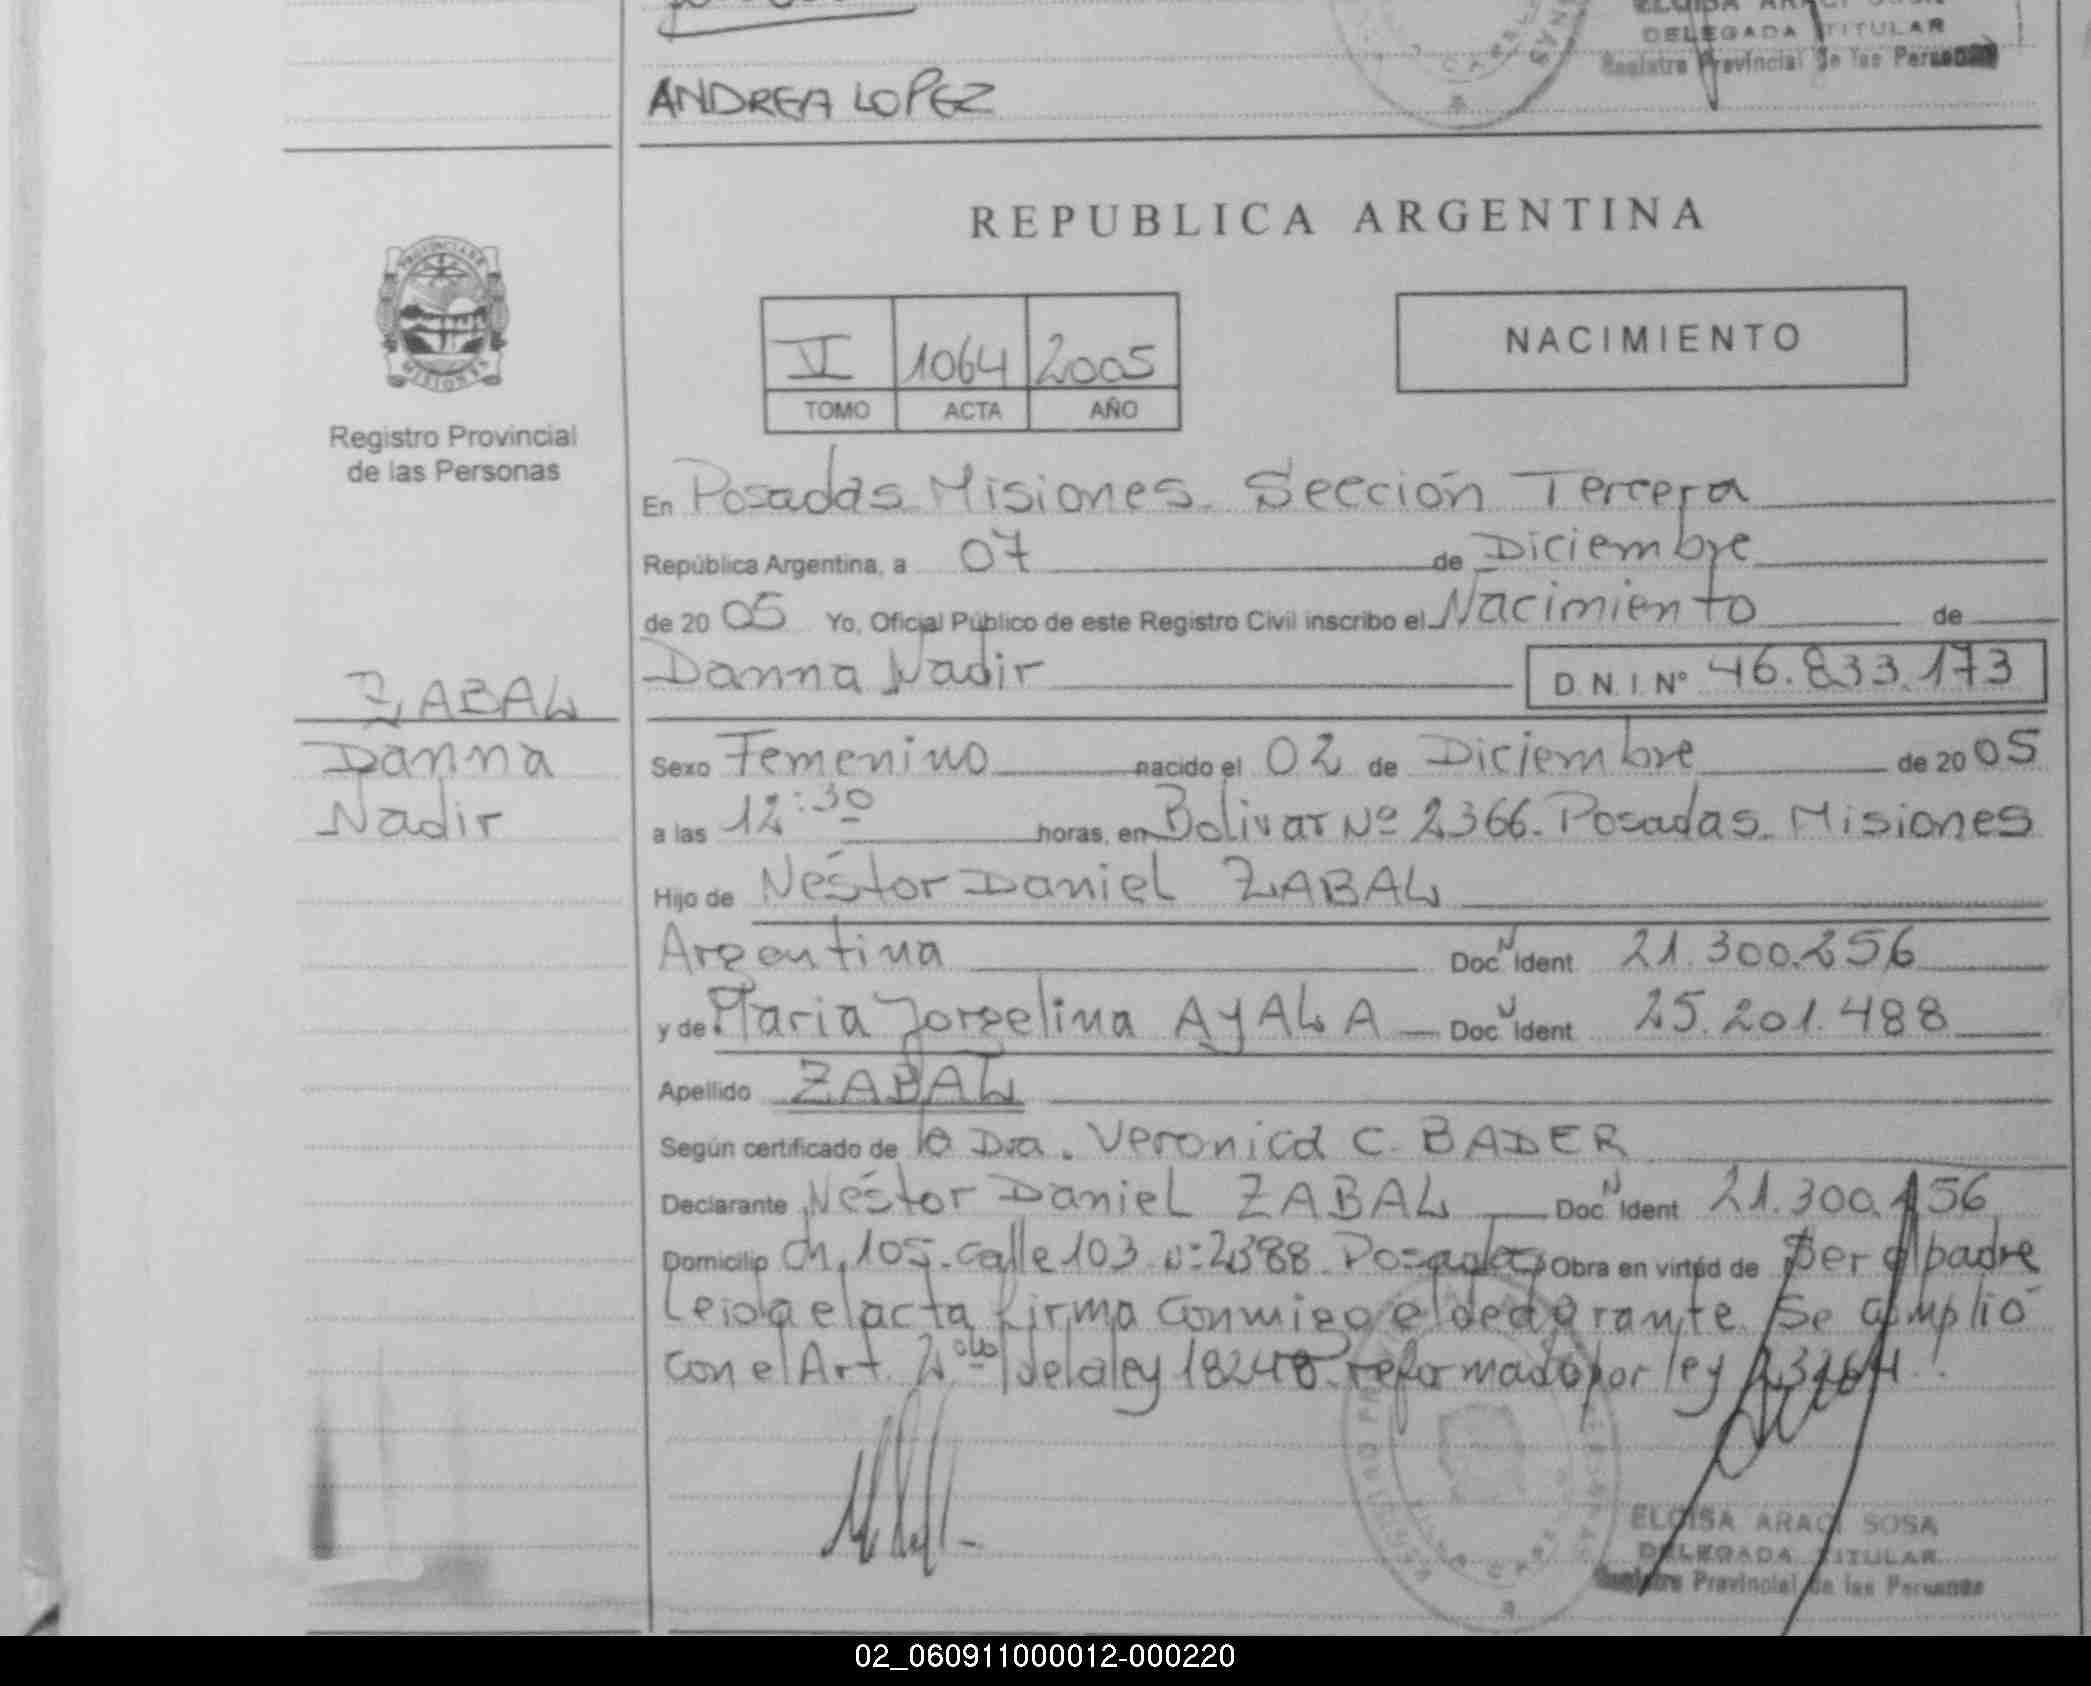 DELEGADA TITULAR
Registro Provincial de las Personas
ANDREA LOPEZ
REPUBLICA ARGENTINA
PROVINCIA DE
MISIONES
Registro Provincial
de las Personas
VI 1064 2005
TOMO ACTA AÑO
NACIMIENTO
En Posadas Misiones. Sección Tercera
República Argentina, a 07 de Diciembre
de 2005 Yo, Oficial Público de este Registro Civil inscribo el Nacimiento de
Danna Nadir D.N.I. Nº 46.833.173
ZABAL
Danna
Nadir
Sexo Femenino nacido el 02 de Diciembre de 2005
a las 12:30 horas, en Bolivar Nº 2366. Posadas. Misiones
Hijo de Néstor Daniel ZABAL
Argentina Doc N Ident 21.300.256
y de Maria Jorgelina AYALA Doc U Ident 25.201.488
Apellido ZABAL
Según certificado de la Dra. Veronica C. BADER
Declarante Néstor Daniel ZABAL Doc N Ident 21.300.156
Domicilio Ch. 105. Calle 103 Nº 2388. Posadas Obra en virtud de Ser el padre
Leida el acta firma conmigo el declarante. Se cumplió
con el Art. 2 do de la ley 18248 reformado por ley
ELOISA ARACI SOSA
DELEGADA TITULAR
Registro Provincial de las Personas
02_060911000012-000220